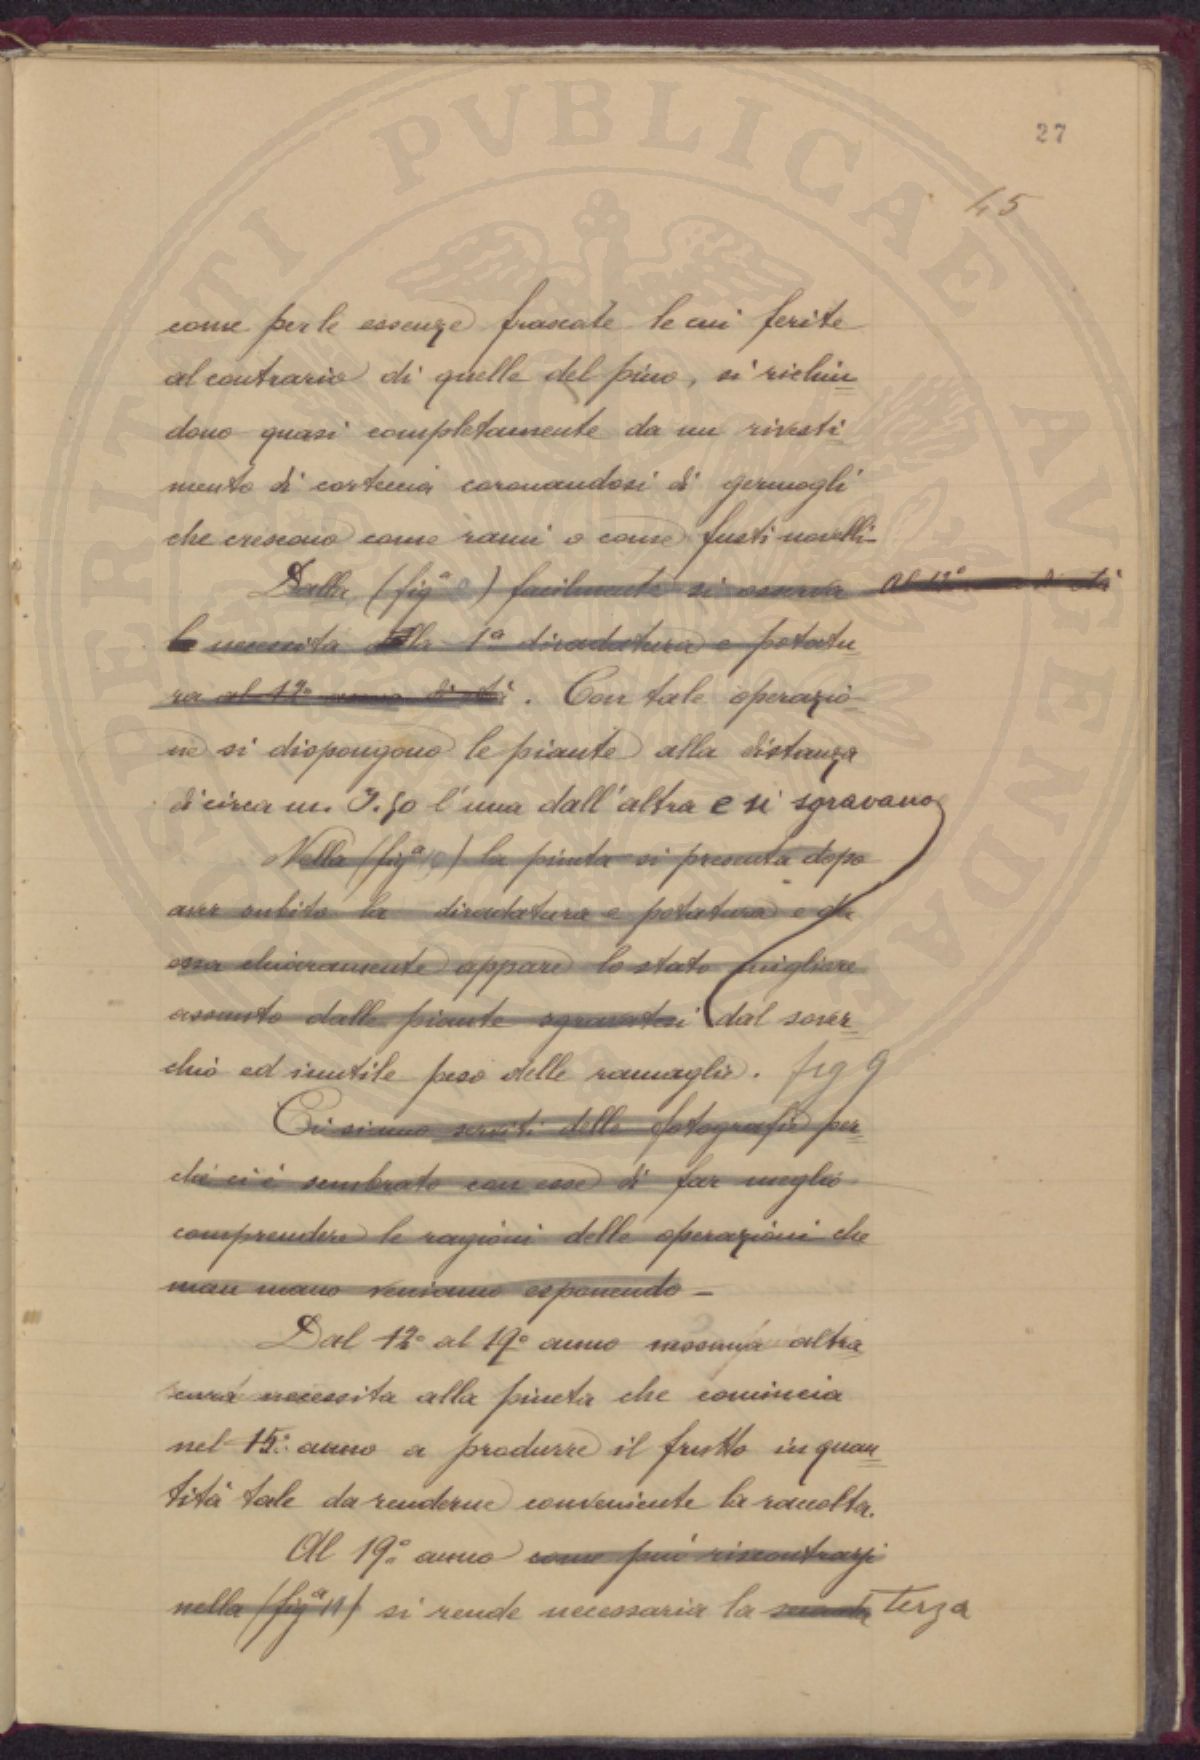 27
45
come per le essenze frascate le cui ferite
al contrario di quelle del pino, si richiu
dono quasi completamente da un rivesti
mento di corteccia coronandosi di germogli
che crescono come rami o come fusti novelli-
Dalla (figª 9) facilmente si osserva Al 12° anno di età
la necessità della 1ª diradatura e potatu
ra al 12° anno di età. Con tale operazio
ne si dispongono le piante alla distanza
di circa m. 3.50 l'una dall'altra e si sgravano
Nella (figª 10) la pineta si presenta dopo
aver subito la diradatura e potatura e da
essa chiaramente appare lo stato migliore
assunto dalle piante sgravatesi dal sover
chio ed inutile peso delle ramaglie. fig 9
Ci siamo serviti delle fotografie per
chè ci è sembrato con esse di far meglio
comprendere le ragioni delle operazioni che
man mano veniamo esponendo-
Dal 12° al 19° anno nessuna altra
cura necessita alla pineta che comincia
nel 15° anno a produrre il frutto in quan
tità tale da renderne conveniente la raccolta.
Al 19° anno come può riscontrarsi
nella (figª 11) si rende necessaria la seconda terza
PERITI PVBLICAE AVGENDAE